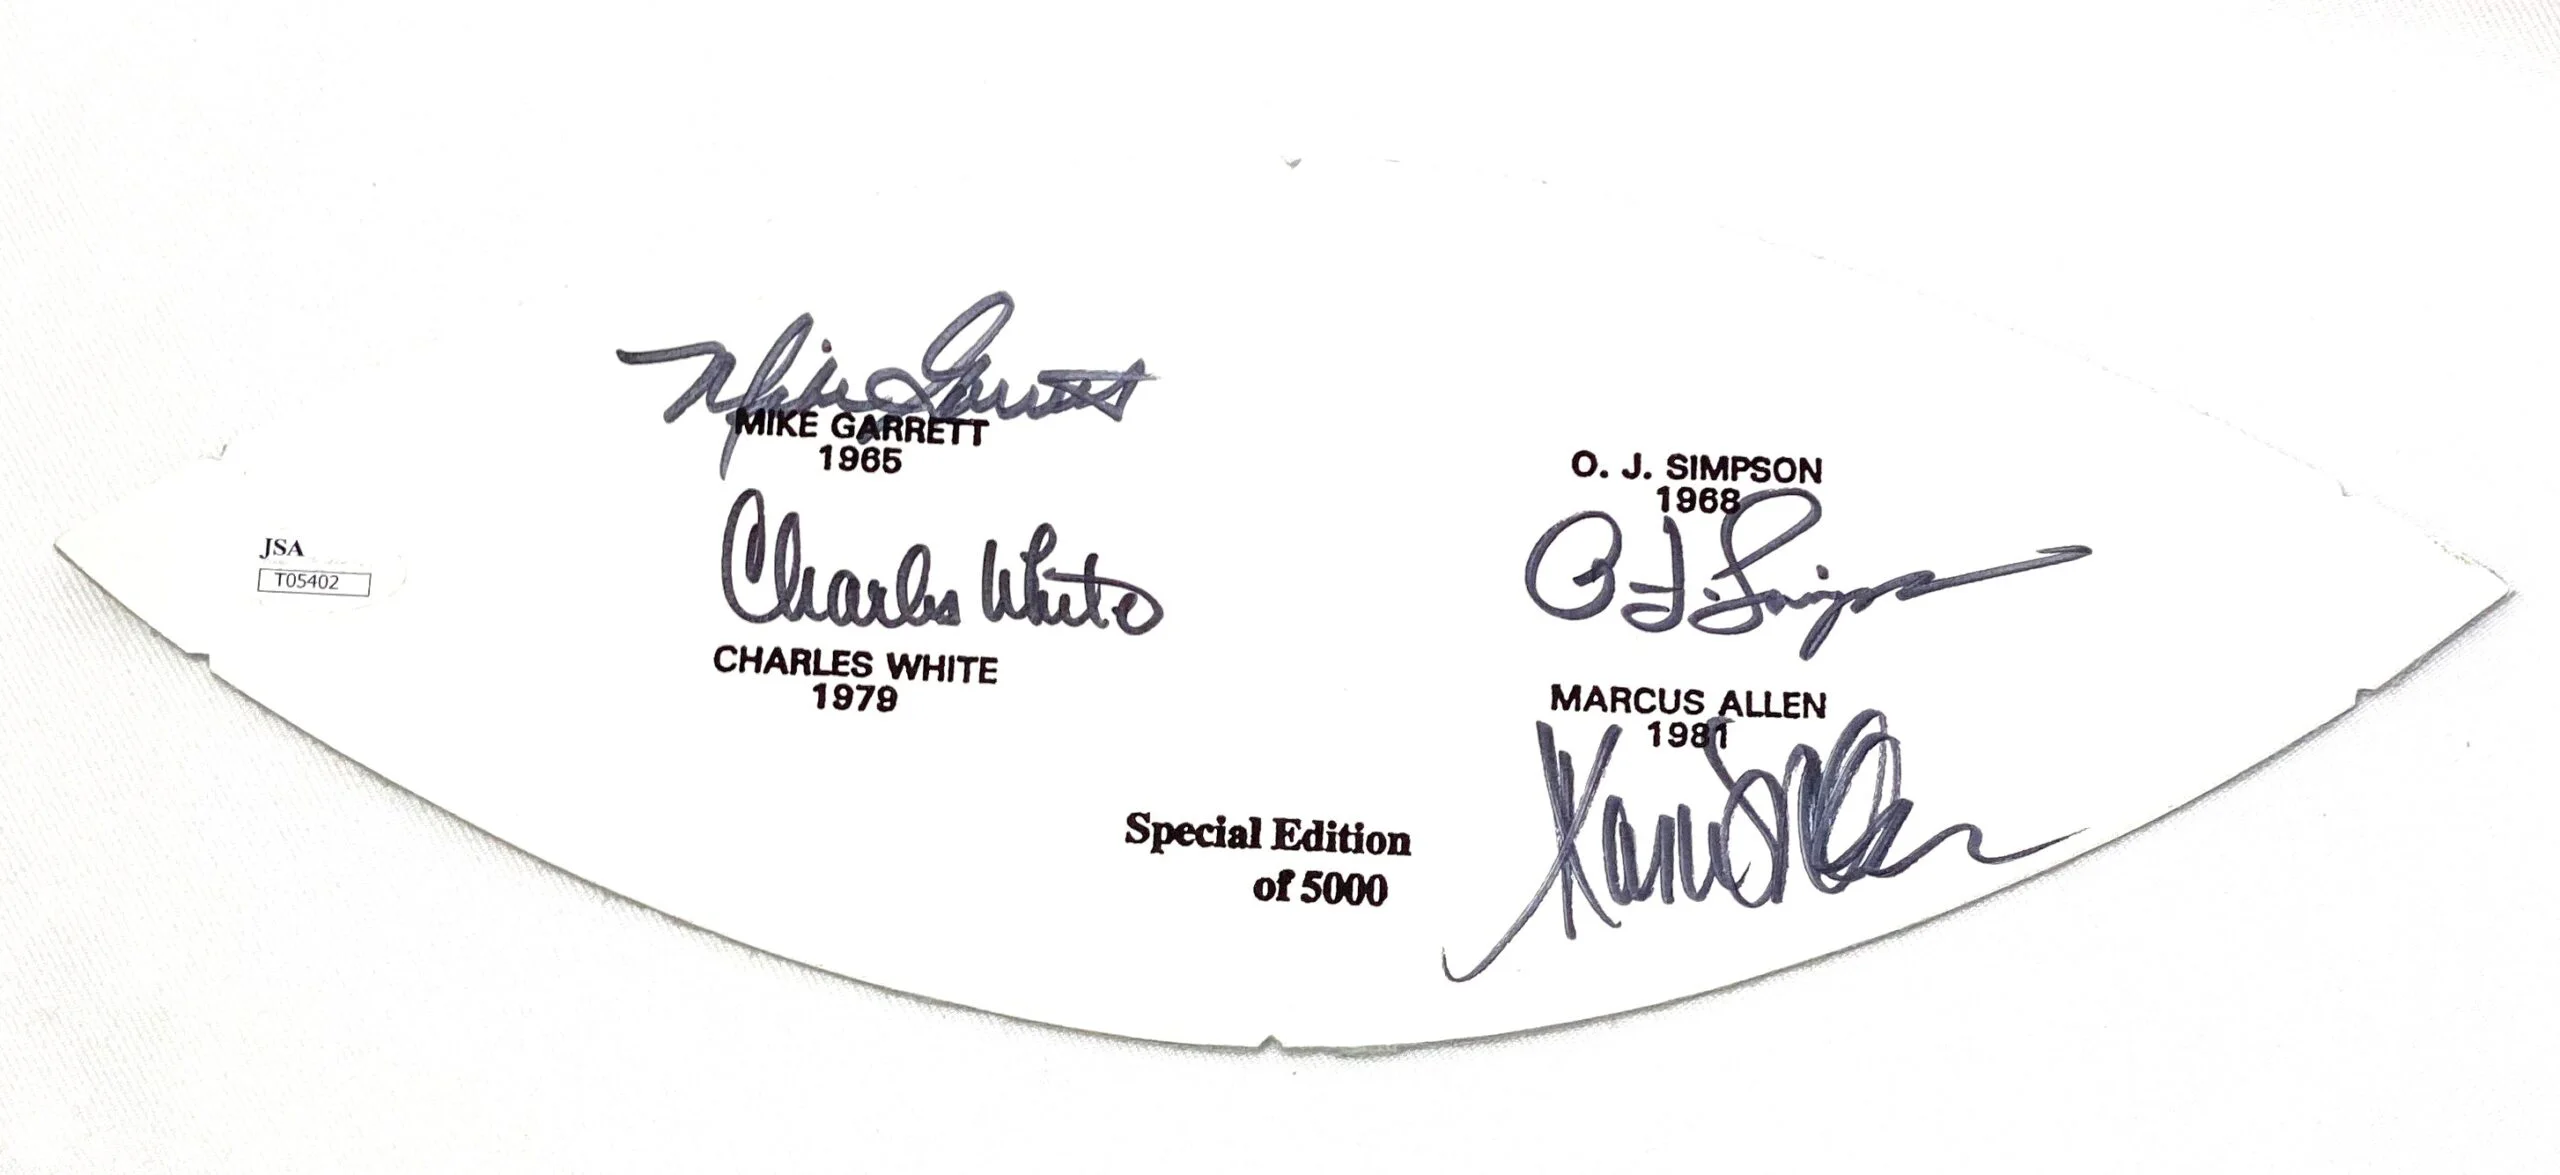 Mike Garrett
MIKE GARRETT
1965
O. J. SIMPSON
1968
O J Simpson
JSA
T05402
Charles White
CHARLES WHITE
1979
MARCUS ALLEN
1981
Marcus Allen
Special Edition
of 5000